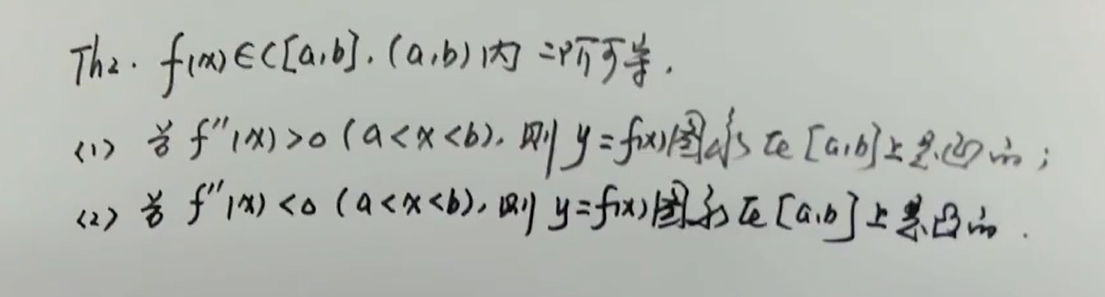 Th2. f(x)∈C[a,b], (a,b)内二阶可导.
(1) 若 f''(x)>0 (a<x<b), 则 y=f(x)图形在[a,b]上是凹的;
(2) 若 f''(x)<0 (a<x<b), 则 y=f(x)图形在[a,b]上是凸的.